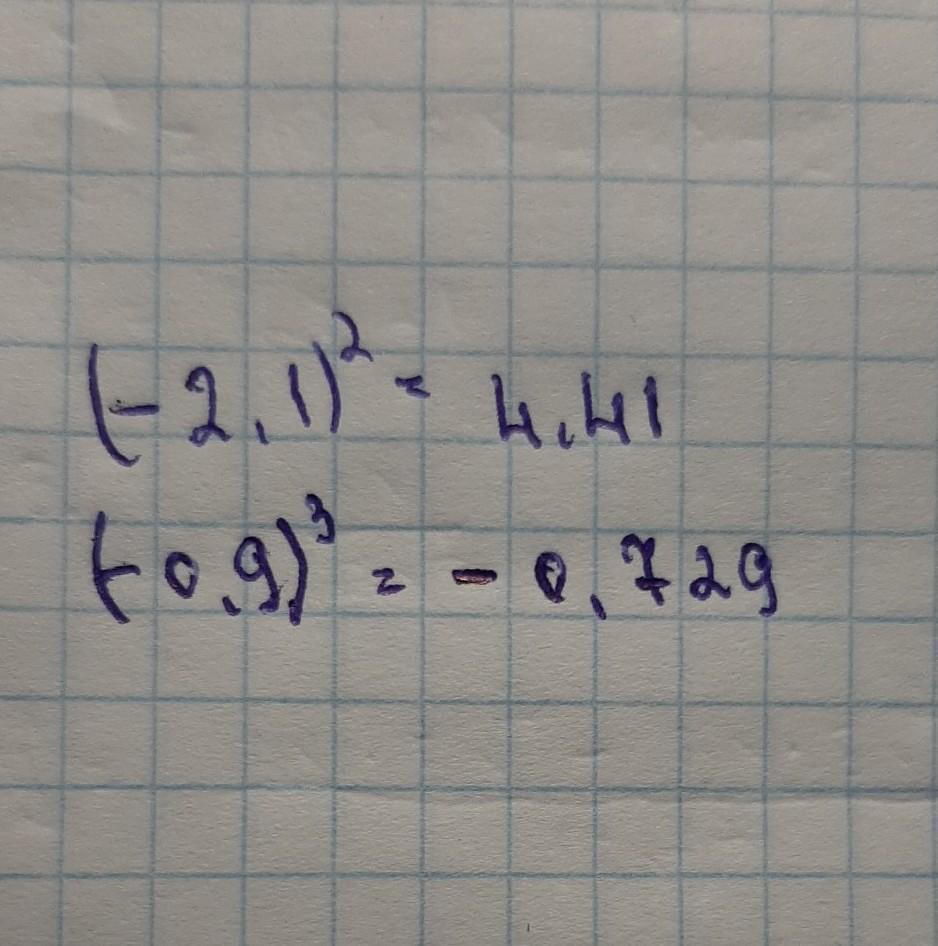 (-2,1)² = 4,41
(-0,9)³ = -0,729